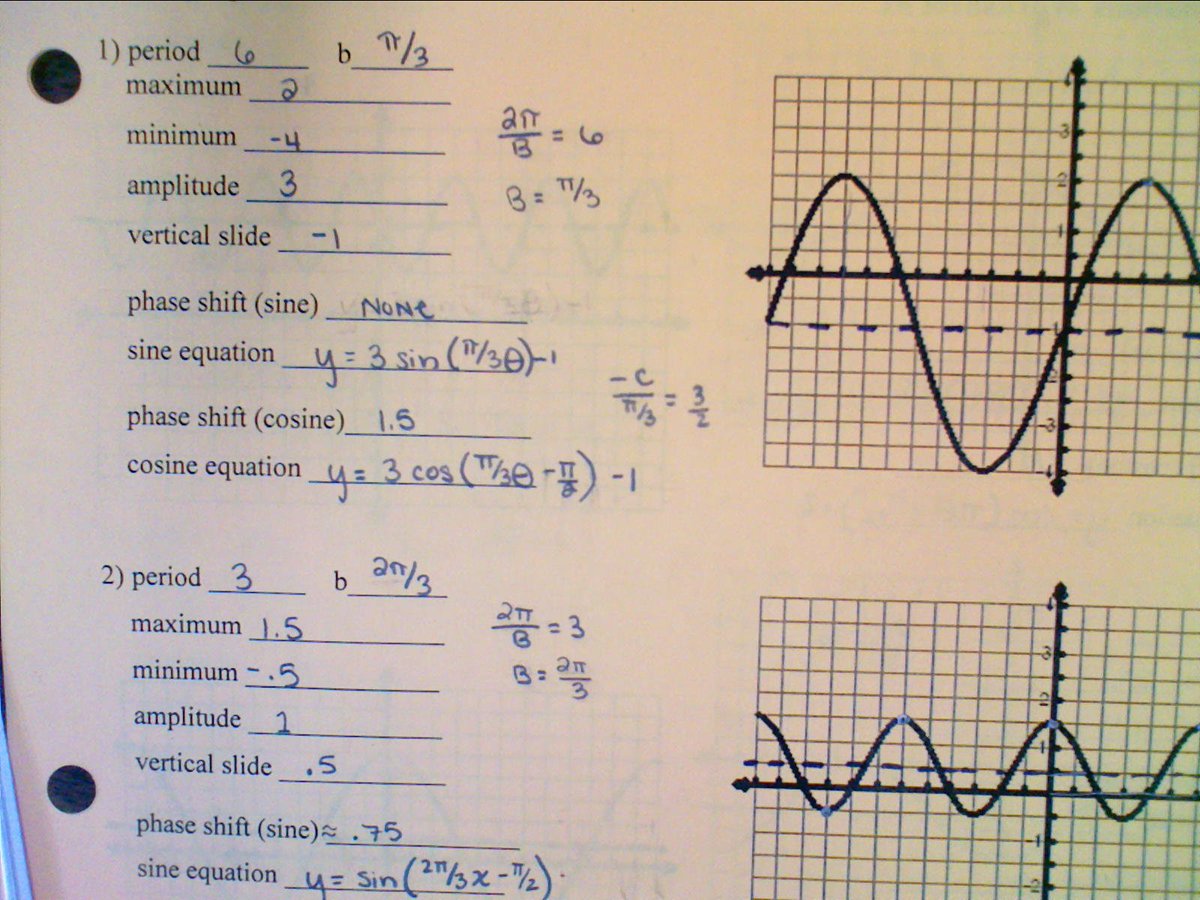 1) period 6 b π/3
maximum 2
minimum -4
2π/B = 6
amplitude 3
B = π/3
vertical slide -1
phase shift (sine) NONE
sine equation y = 3 sin(π/3θ)-1
-C/π/3 = 3/2
phase shift (cosine) 1.5
cosine equation y = 3 cos(π/3θ - π/2) -1
3
2
1
-1
2
-3
2) period 3 b 2π/3
maximum 1.5
2π/B = 3
minimum -.5
B = 2π/3
amplitude 1
vertical slide .5
phase shift (sine) ≈ .75
sine equation y = sin(2π/3x - π/2)
3
2
1
-1
-2